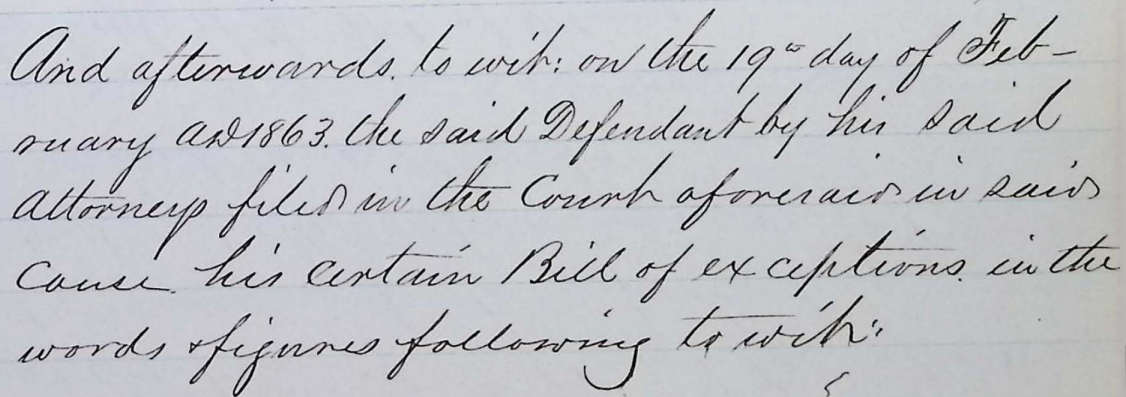 And afterwards, to wit: on the 19" day of Feb-
ruary AD 1863. the said Defendant by his said
attorneys filed in the Court aforesaid in said
cause his certain Bill of exceptions in the
words & figures following to wit: